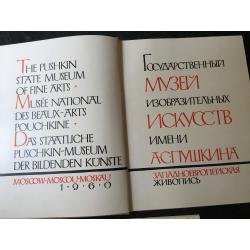 THE PUSHKIN
STATE MUSEUM
OF FINE ARTS •
MUSÉE NATIONAL
DES BEAUX-ARTS
POUCHKINE •
DAS STAATLICHE
PUSCHKIN-MUSEUM
DER BILDENDEN KÜNSTE
MOSCOW-MOSCOU-MOSKAU
1-9-6-0
ГОСУДАРСТВЕННЫЙ
МУЗЕЙ
ИЗОБРАЗИТЕЛЬНЫХ
ИСКУССТВ
ИМЕНИ
А•С•ПУШКИНА
ЗАПАДНОЕВРОПЕЙСКАЯ
ЖИВОПИСЬ